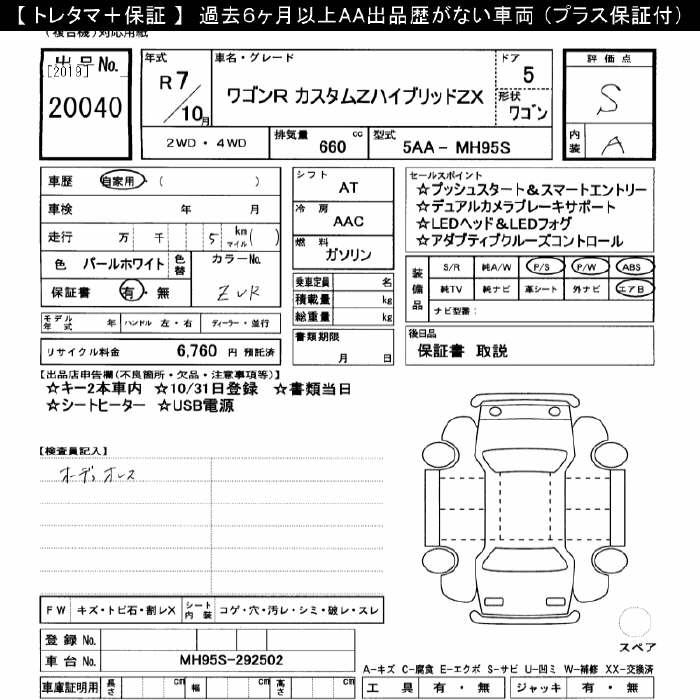 【 トレタマ＋保証 】 過去6ヶ月以上AA出品歴がない車両 (プラス保証付)
(複合機)対応用紙
出品No.
[2019]
20040
年式
R7/10月
車名・グレード
ワゴンR カスタムZハイブリッドZX
ドア
5
形状
ワゴン
評価点
S
内装
A
2WD・4WD
排気量 660 cc
型式 5AA－MH95S
車歴 自家用・( )
車検 年 月
走行 万 千 5 km マイル( )
色 パールホワイト 色替
カラーNo.
ZVR
保証書 有・無
モデル年式 年 ハンドル 左・右 ディーラー・並行
リサイクル料金 6,760 円 預託済
シフト
AT
冷房
AAC
燃料
ガソリン
乗車定員 名
積載量 kg
総重量 kg
書類期限
月 日
セールスポイント
☆プッシュスタート＆スマートエントリー
☆デュアルカメラブレーキサポート
☆LEDヘッド＆LEDフォグ
☆アダプティブクルーズコントロール
装備品
S/R 純A/W P/S P/W ABS
純TV 純ナビ 革シート 外ナビ エアB
ナビ型番：
後日品
保証書 取説
【出品店申告欄(不良箇所・欠品・注意事項等)】
☆キー2本車内 ☆10/31日登録 ☆書類当日
☆シートヒーター ☆USB電源
【検査員記入】
オーディオレス
FW キズ・トビ石・割レX シート内装 コゲ・穴・汚レ・シミ・破レ・スレ
登録No.
車台No. MH95S-292502
車庫証明用 長さ cm 幅 cm 高さ cm
スペア
A-キズ C-腐食 E-エクボ S-サビ U-凹ミ W-補修 XX-交換済
工具 有・無 ジャッキ 有・無